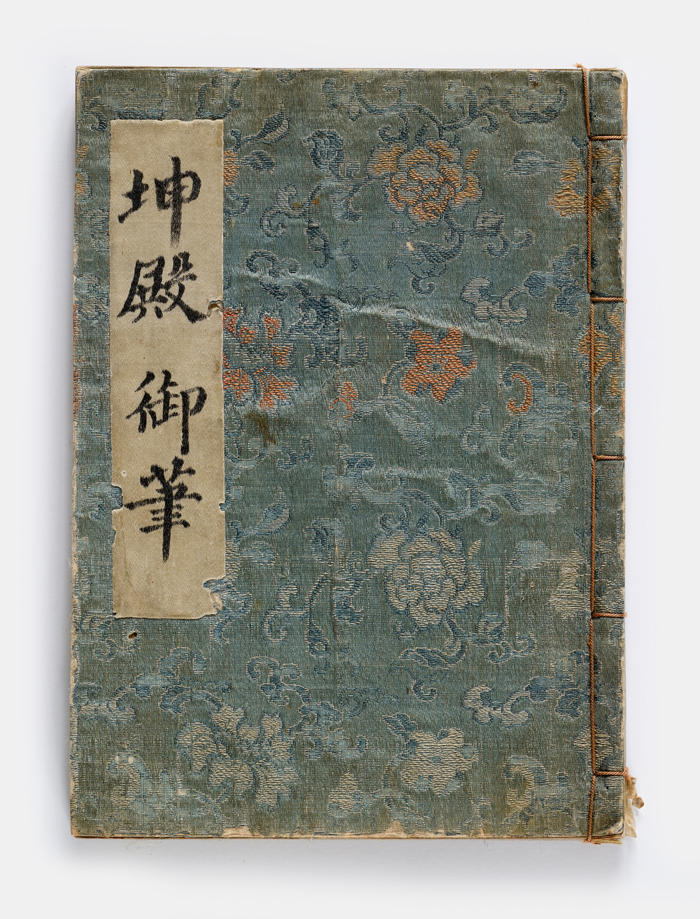 坤殿 御筆